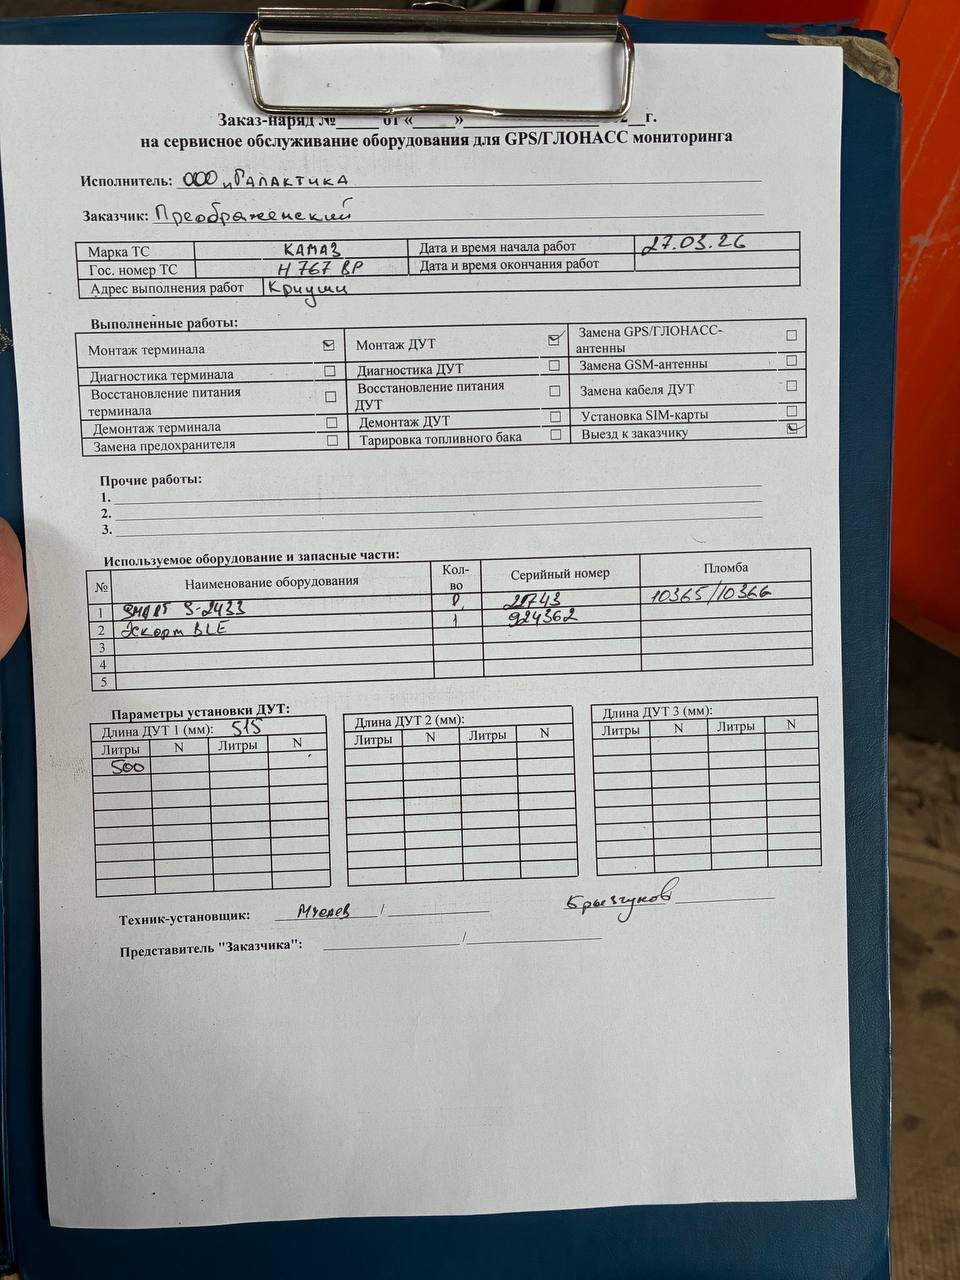 Заказ-наряд №_____ от «_____»____________________ 2__г.
на сервисное обслуживание оборудования для GPS/ГЛОНАСС мониторинга
Исполнитель: ООО "Галактика
Заказчик: Преображенский
Марка ТС КАМАЗ Дата и время начала работ 27.03.26
Гос. номер ТС Н 767 ВР Дата и время окончания работ
Адрес выполнения работ Криуши
Выполненные работы:
Монтаж терминала ☑ Монтаж ДУТ ☑ Замена GPS/ГЛОНАСС-антенны ☐
Диагностика терминала ☐ Диагностика ДУТ ☐ Замена GSM-антенны ☐
Восстановление питания терминала ☐ Восстановление питания ДУТ ☐ Замена кабеля ДУТ ☐
Демонтаж терминала ☐ Демонтаж ДУТ ☐ Установка SIM-карты ☐
Замена предохранителя ☐ Тарировка топливного бака ☐ Выезд к заказчику ☑
Прочие работы:
1.
2.
3.
Используемое оборудование и запасные части:
№ Наименование оборудования Кол-во Серийный номер Пломба
1 SMART S-2433 21743 10365/10366
2 Эскорт BLE 1 924362
3
4
5
Параметры установки ДУТ:
Длина ДУТ 1 (мм): 515 Длина ДУТ 2 (мм): Длина ДУТ 3 (мм):
Литры N Литры N Литры N Литры N Литры N Литры N
500
Техник-установщик: / Брызгунов
Представитель "Заказчика": /